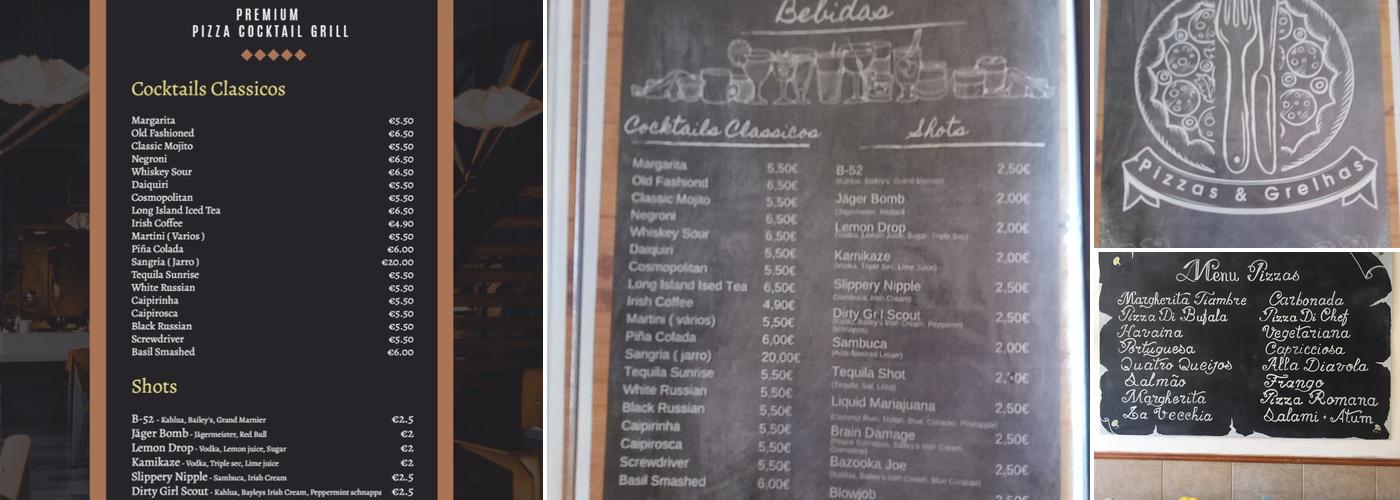 PREMIUM
PIZZA COCKTAIL GRILL
Cocktails Classicos
Margarita €5.50
Old Fashioned €6.50
Classic Mojito €5.50
Negroni €6.50
Whiskey Sour €6.50
Daiquiri €5.50
Cosmopolitan €5.50
Long Island Iced Tea €6.50
Irish Coffee €4.90
Martini ( Varios ) €5.50
Piña Colada €6.00
Sangria ( Jarro ) €20.00
Tequila Sunrise €5.50
White Russian €5.50
Caipirinha €5.50
Caipirosca €5.50
Black Russian €5.50
Screwdriver €5.50
Basil Smashed €6.00
Shots
B-52 - Kahlua, Bailey's, Grand Marnier €2.5
Jäger Bomb - Jägermeister, Red Bull €2
Lemon Drop - Vodka, Lemon juice, Sugar €2
Kamikaze - Vodka, Triple sec, Lime juice €2
Slippery Nipple - Sambuca, Irish Cream €2.5
Dirty Girl Scout - Kahlua, Bayleys Irish Cream, Peppermint schnapps €2.5
Bebidas
Cocktails Classicos
Margarita 5,50€
Old Fashiond 6,50€
Classic Mojito 5,50€
Negroni 6,50€
Whiskey Sour 6,50€
Daiquiri 5,50€
Cosmopolitan 5,50€
Long Island Ised Tea 6,50€
Irish Coffee 4,90€
Martini ( vários) 5,50€
Piña Colada 6,00€
Sangria ( jarro) 20,00€
Tequila Sunrise 5,50€
White Russian 5,50€
Black Russian 5,50€
Caipirinha 5,50€
Caipirosca 5,50€
Screwdriver 5,50€
Basil Smashed 6,00€
Shots
B-52 2,50€
(Kahlua, Bailey's, Grand Marnier)
Jäger Bomb 2,00€
(Jägermeister, Redbull)
Lemon Drop 2,00€
(Vodka, Lemon Juice, Sugar, Triple Sec)
Kamikaze 2,00€
(Vodka, Triple Sec, Lime Juice)
Slippery Nipple 2,50€
(Sambuca, Irish Cream)
Dirty Girl Scout 2,50€
Bailey's Irish Cream, Peppermint
Schnapps)
Sambuca 2,00€
(Anis-flavored Liquer)
Tequila Shot
(Tequila, Sal, Lima)
Liquid Mariajuana 2,50€
(Coconut Rum, Melon, Blue, Curacao, Pineapple)
Brain Damage 2,50€
(Peach Schnapps, Bailey's Irish Cream,
Grenadine)
Bazooka Joe 2,50€
(Kahlua, Bailey's Irish Cream, Blue Curacao)
Blowjob 2,50€
Pizzas & Grelhas
Menu Pizzas
Margherita Fiambre
Pizza Di Bufala
Havaina
Portuguesa
Quatro Queijos
Salmão
Margherita
La Vecchia
Carbonada
Pizza Di Chef
Vegetariana
Capricciosa
Alla Diavola
Frango
Pizza Romana
Salami + Atum